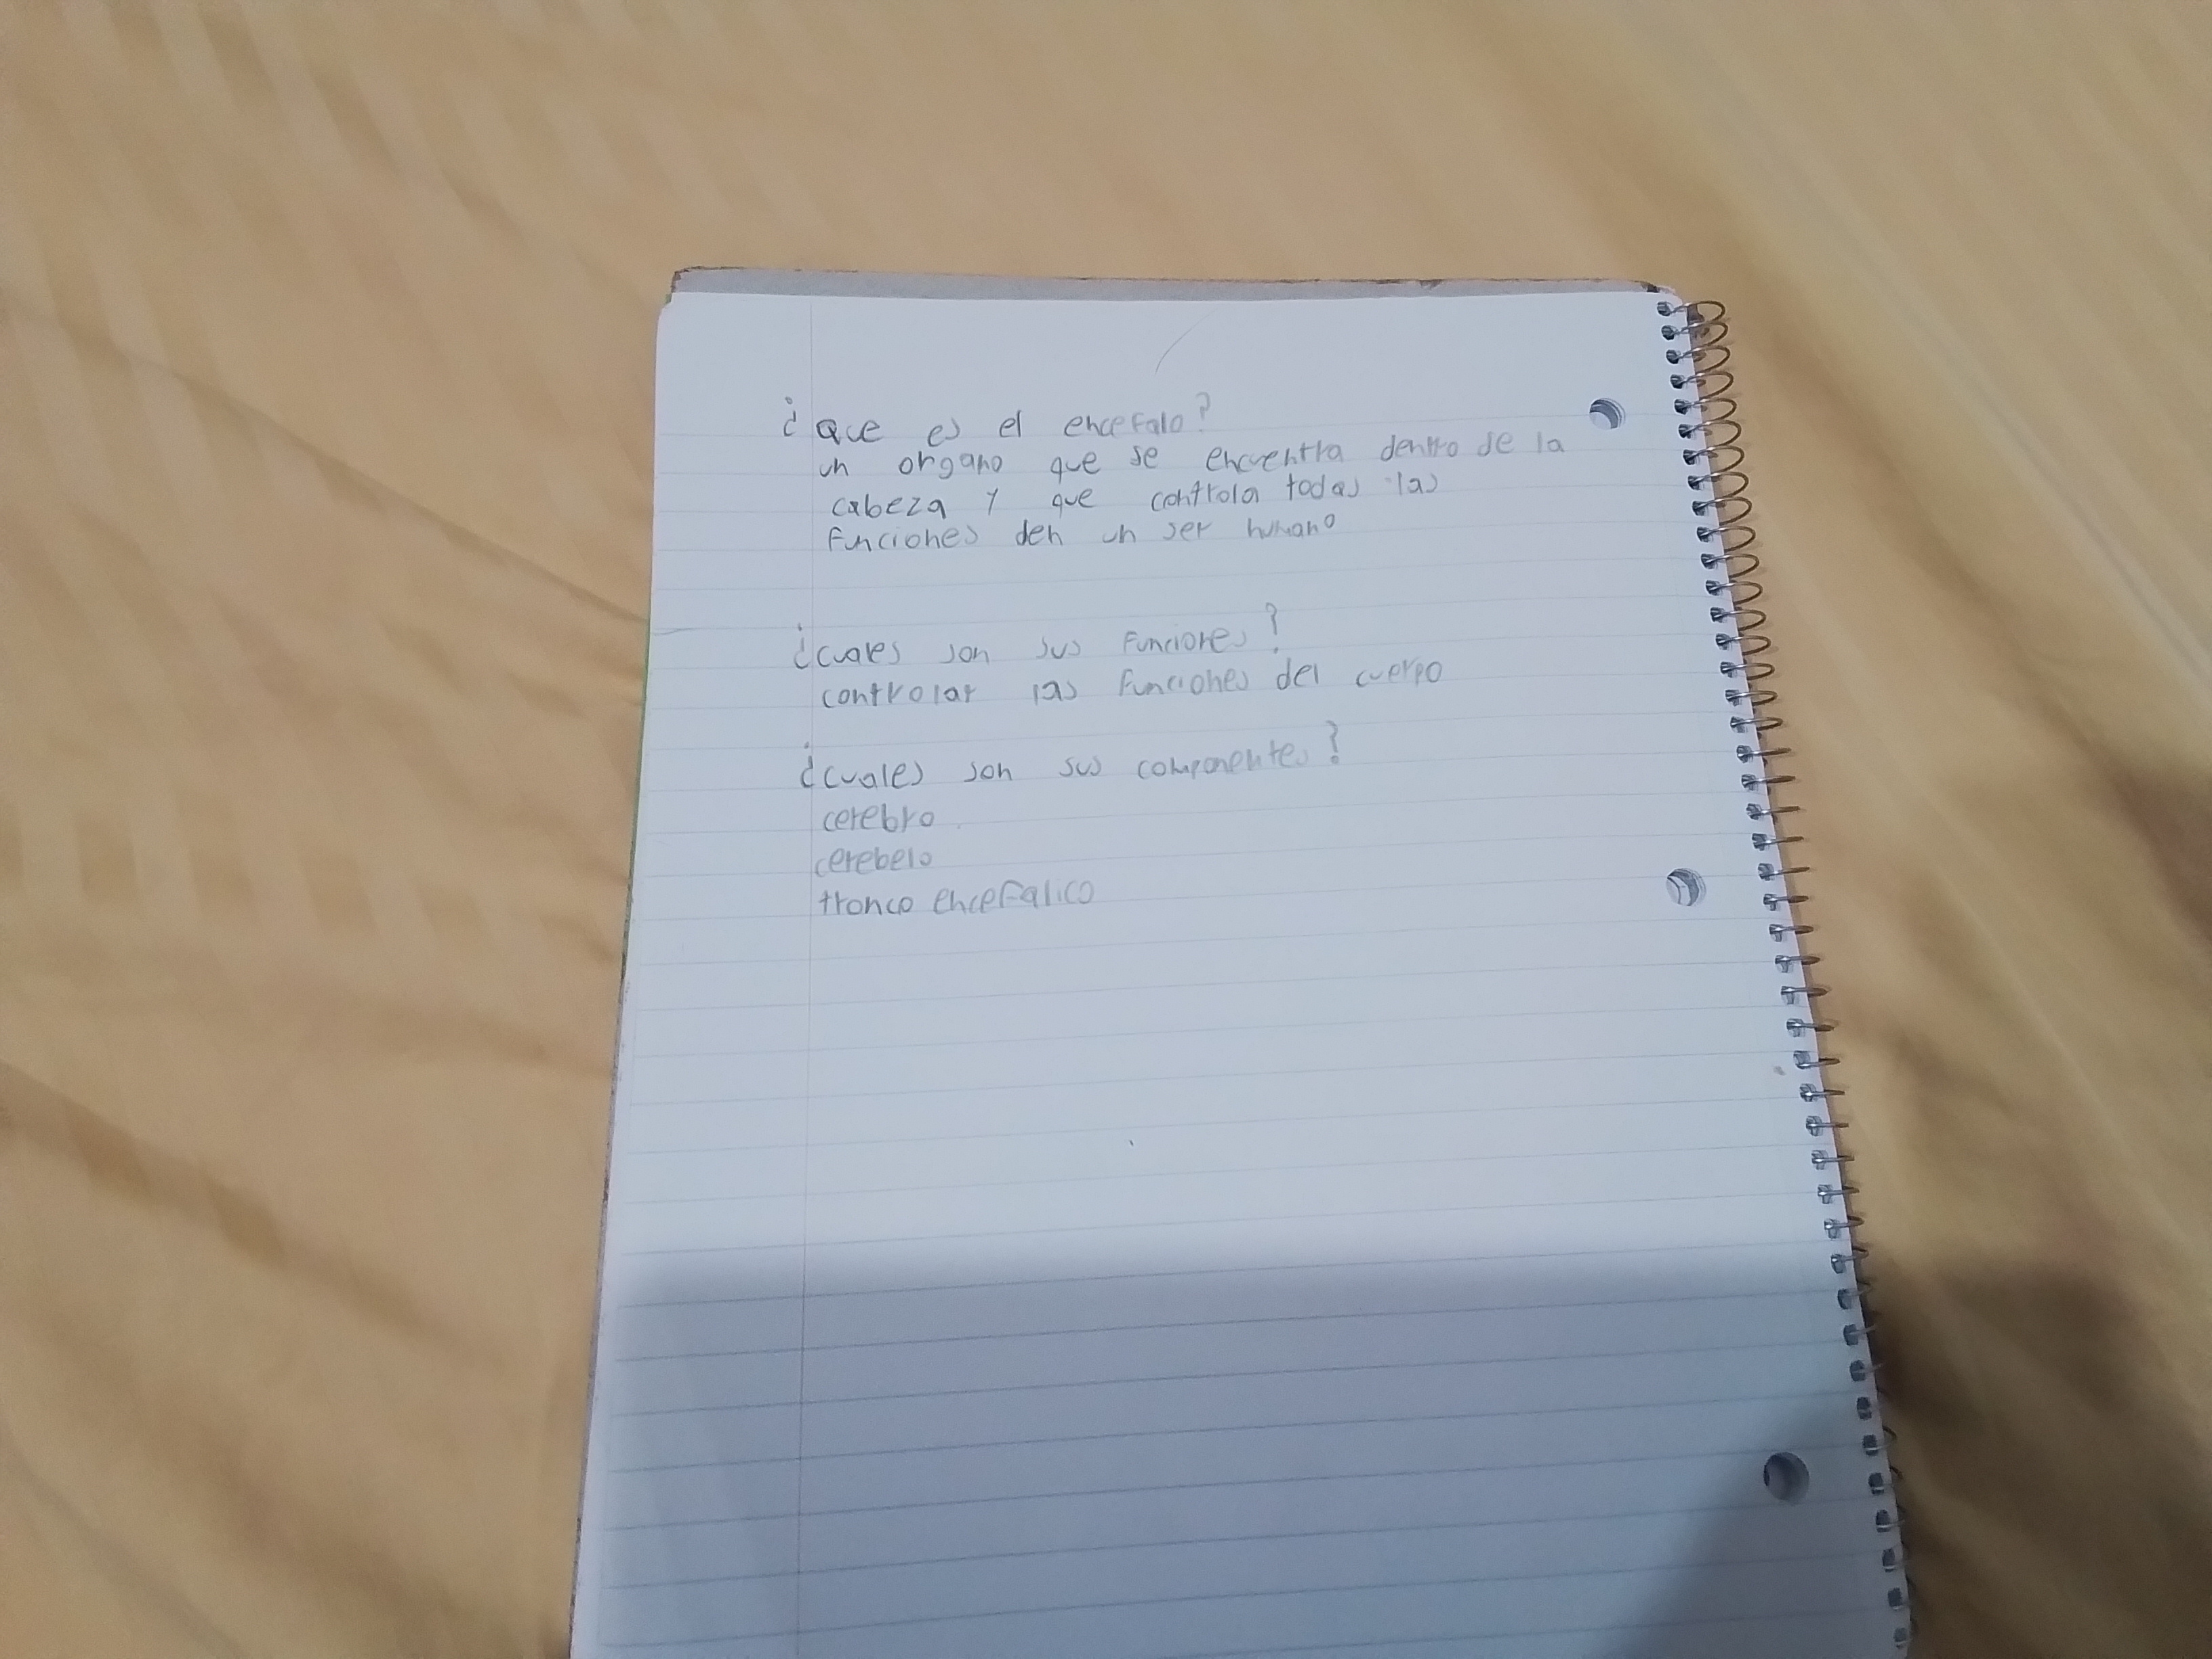 ¿que es el encefalo?
un organo que se encuentra dentro de la
cabeza y que controla todas las
funciones den un ser humano
¿cuales son sus funciones?
controlar las funciones del cuerpo
¿cuales son sus componentes?
cerebro
cerebelo
tronco encefalico